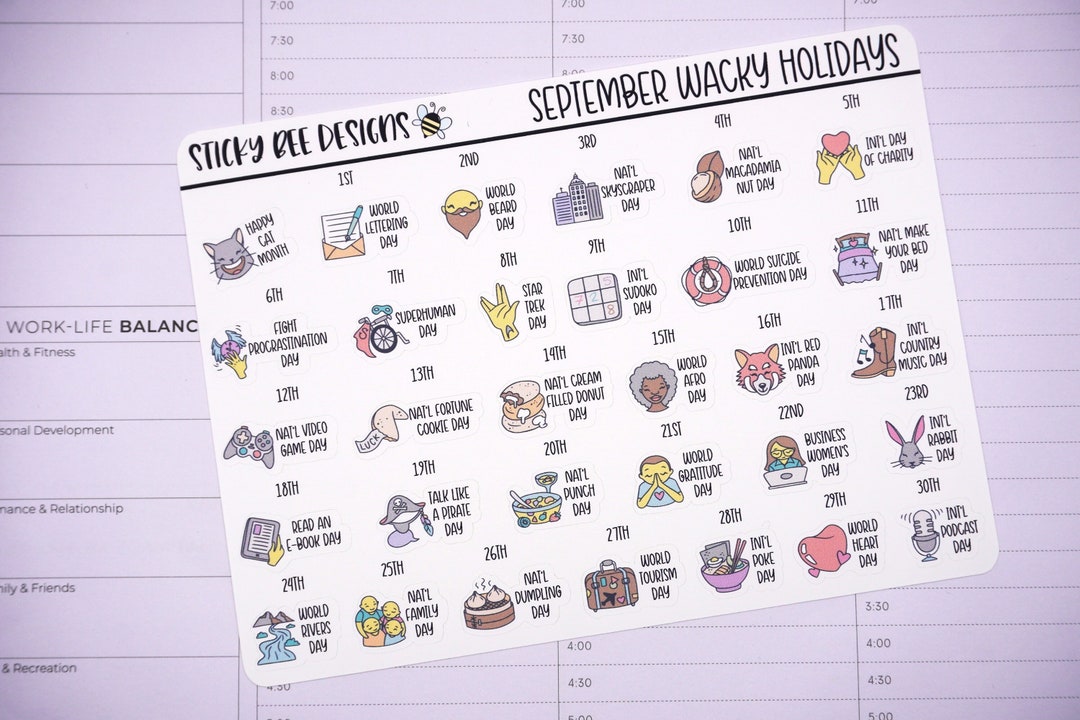 7:00
7:30
8:00
8:30
7:00
7:30
8:0
7:00
7:30
WORK-LIFE BALANC
alth & Fitness
sonal Development
nance & Relationship
ily & Friends
& Recreation
STICKY BEE DESIGNS
SEPTEMBER WACKY HOLIDAYS
HAPPY
CAT
MONTH
1ST
WORLD
LETTERING
DAY
2ND
WORLD
BEARD
DAY
3RD
NAT'L
SKYSCRAPER
DAY
4TH
NAT'L
MACADAMIA
NUT DAY
5TH
INT'L DAY
OF CHARITY
6TH
FIGHT
PROCRASTINATION
DAY
7TH
SUPERHUMAN
DAY
8TH
STAR
TREK
DAY
9TH
5
7 2
8
INT'L
SUDOKU
DAY
10TH
WORLD SUICIDE
PREVENTION DAY
11TH
NAT'L MAKE
YOUR BED
DAY
12TH
NAT'L VIDEO
GAME DAY
13TH
LUCK
NAT'L FORTUNE
COOKIE DAY
14TH
NAT'L CREAM
FILLED DONUT
DAY
15TH
WORLD
AFRO
DAY
16TH
INT'L RED
PANDA
DAY
17TH
INT'L
COUNTRY
MUSIC DAY
18TH
READ AN
E-BOOK DAY
19TH
TALK LIKE
A PIRATE
DAY
20TH
NAT'L
PUNCH
DAY
21ST
WORLD
GRATITUDE
DAY
22ND
BUSINESS
WOMEN'S
DAY
23RD
INT'L
RABBIT
DAY
24TH
WORLD
RIVERS
DAY
25TH
NAT'L
FAMILY
DAY
26TH
NAT'L
DUMPLING
DAY
27TH
WORLD
TOURISM
DAY
28TH
INT'L
POKE
DAY
29TH
WORLD
HEART
DAY
30TH
INT'L
PODCAST
DAY
4:30
4:00
4:30
5:00
3:30
4:00
4:30
5:00